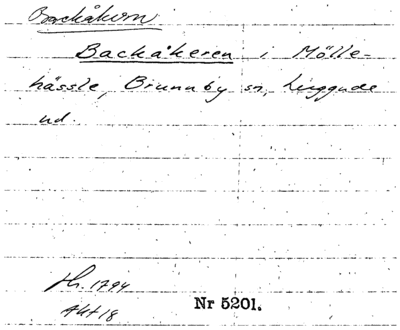 Backåkern
Backåkeren i Mölle-
hässle, Brunnby sn, Luggude
hd.
Sk. 1794
Akt 18
Nr 5201.